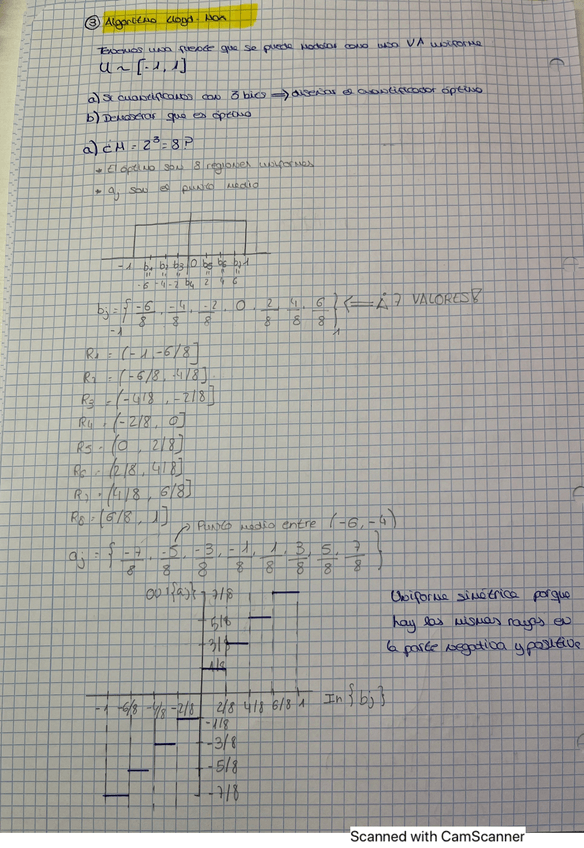 ③ Algoritmo Lloyd-Max
Tenemos una fuente que se puede modelar como una VA uniforme
U ~ [-1, 1]
a) Si cuantificamos con 3 bits ⟹ diseñar el cuantificador óptimo
b) Demostrar que es óptimo
a) ¿M = 2³ = 8?
• El óptimo son 8 regiones uniformes
• aj son el punto medio
-1 b1 b2 b3 0 b5 b6 b7 1
-6 -4 -2 b4 2 4 6
bj = { -6/8, -4/8, -2/8, 0, 2/8, 4/8, 6/8 } ⟸ ¿7 VALORES?
-1 1
R1 = (-1, -6/8]
R2 = (-6/8, -4/8]
R3 = (-4/8, -2/8]
R4 = (-2/8, 0]
R5 = (0, 2/8]
R6 = (2/8, 4/8]
R7 = (4/8, 6/8]
R8 = (6/8, 1]
Punto medio entre (-6, -4)
aj = { -7/8, -5/8, -3/8, -1/8, 1/8, 3/8, 5/8, 7/8 }
Out{aj} 7/8
5/8
3/8
1/8
Uniforme simétrica porque
hay las mismas rayas en
la parte negativa y positiva
-1 -6/8 -4/8 -2/8 2/8 4/8 6/8 1 In{bj}
-1/8
-3/8
-5/8
-7/8
Scanned with CamScanner